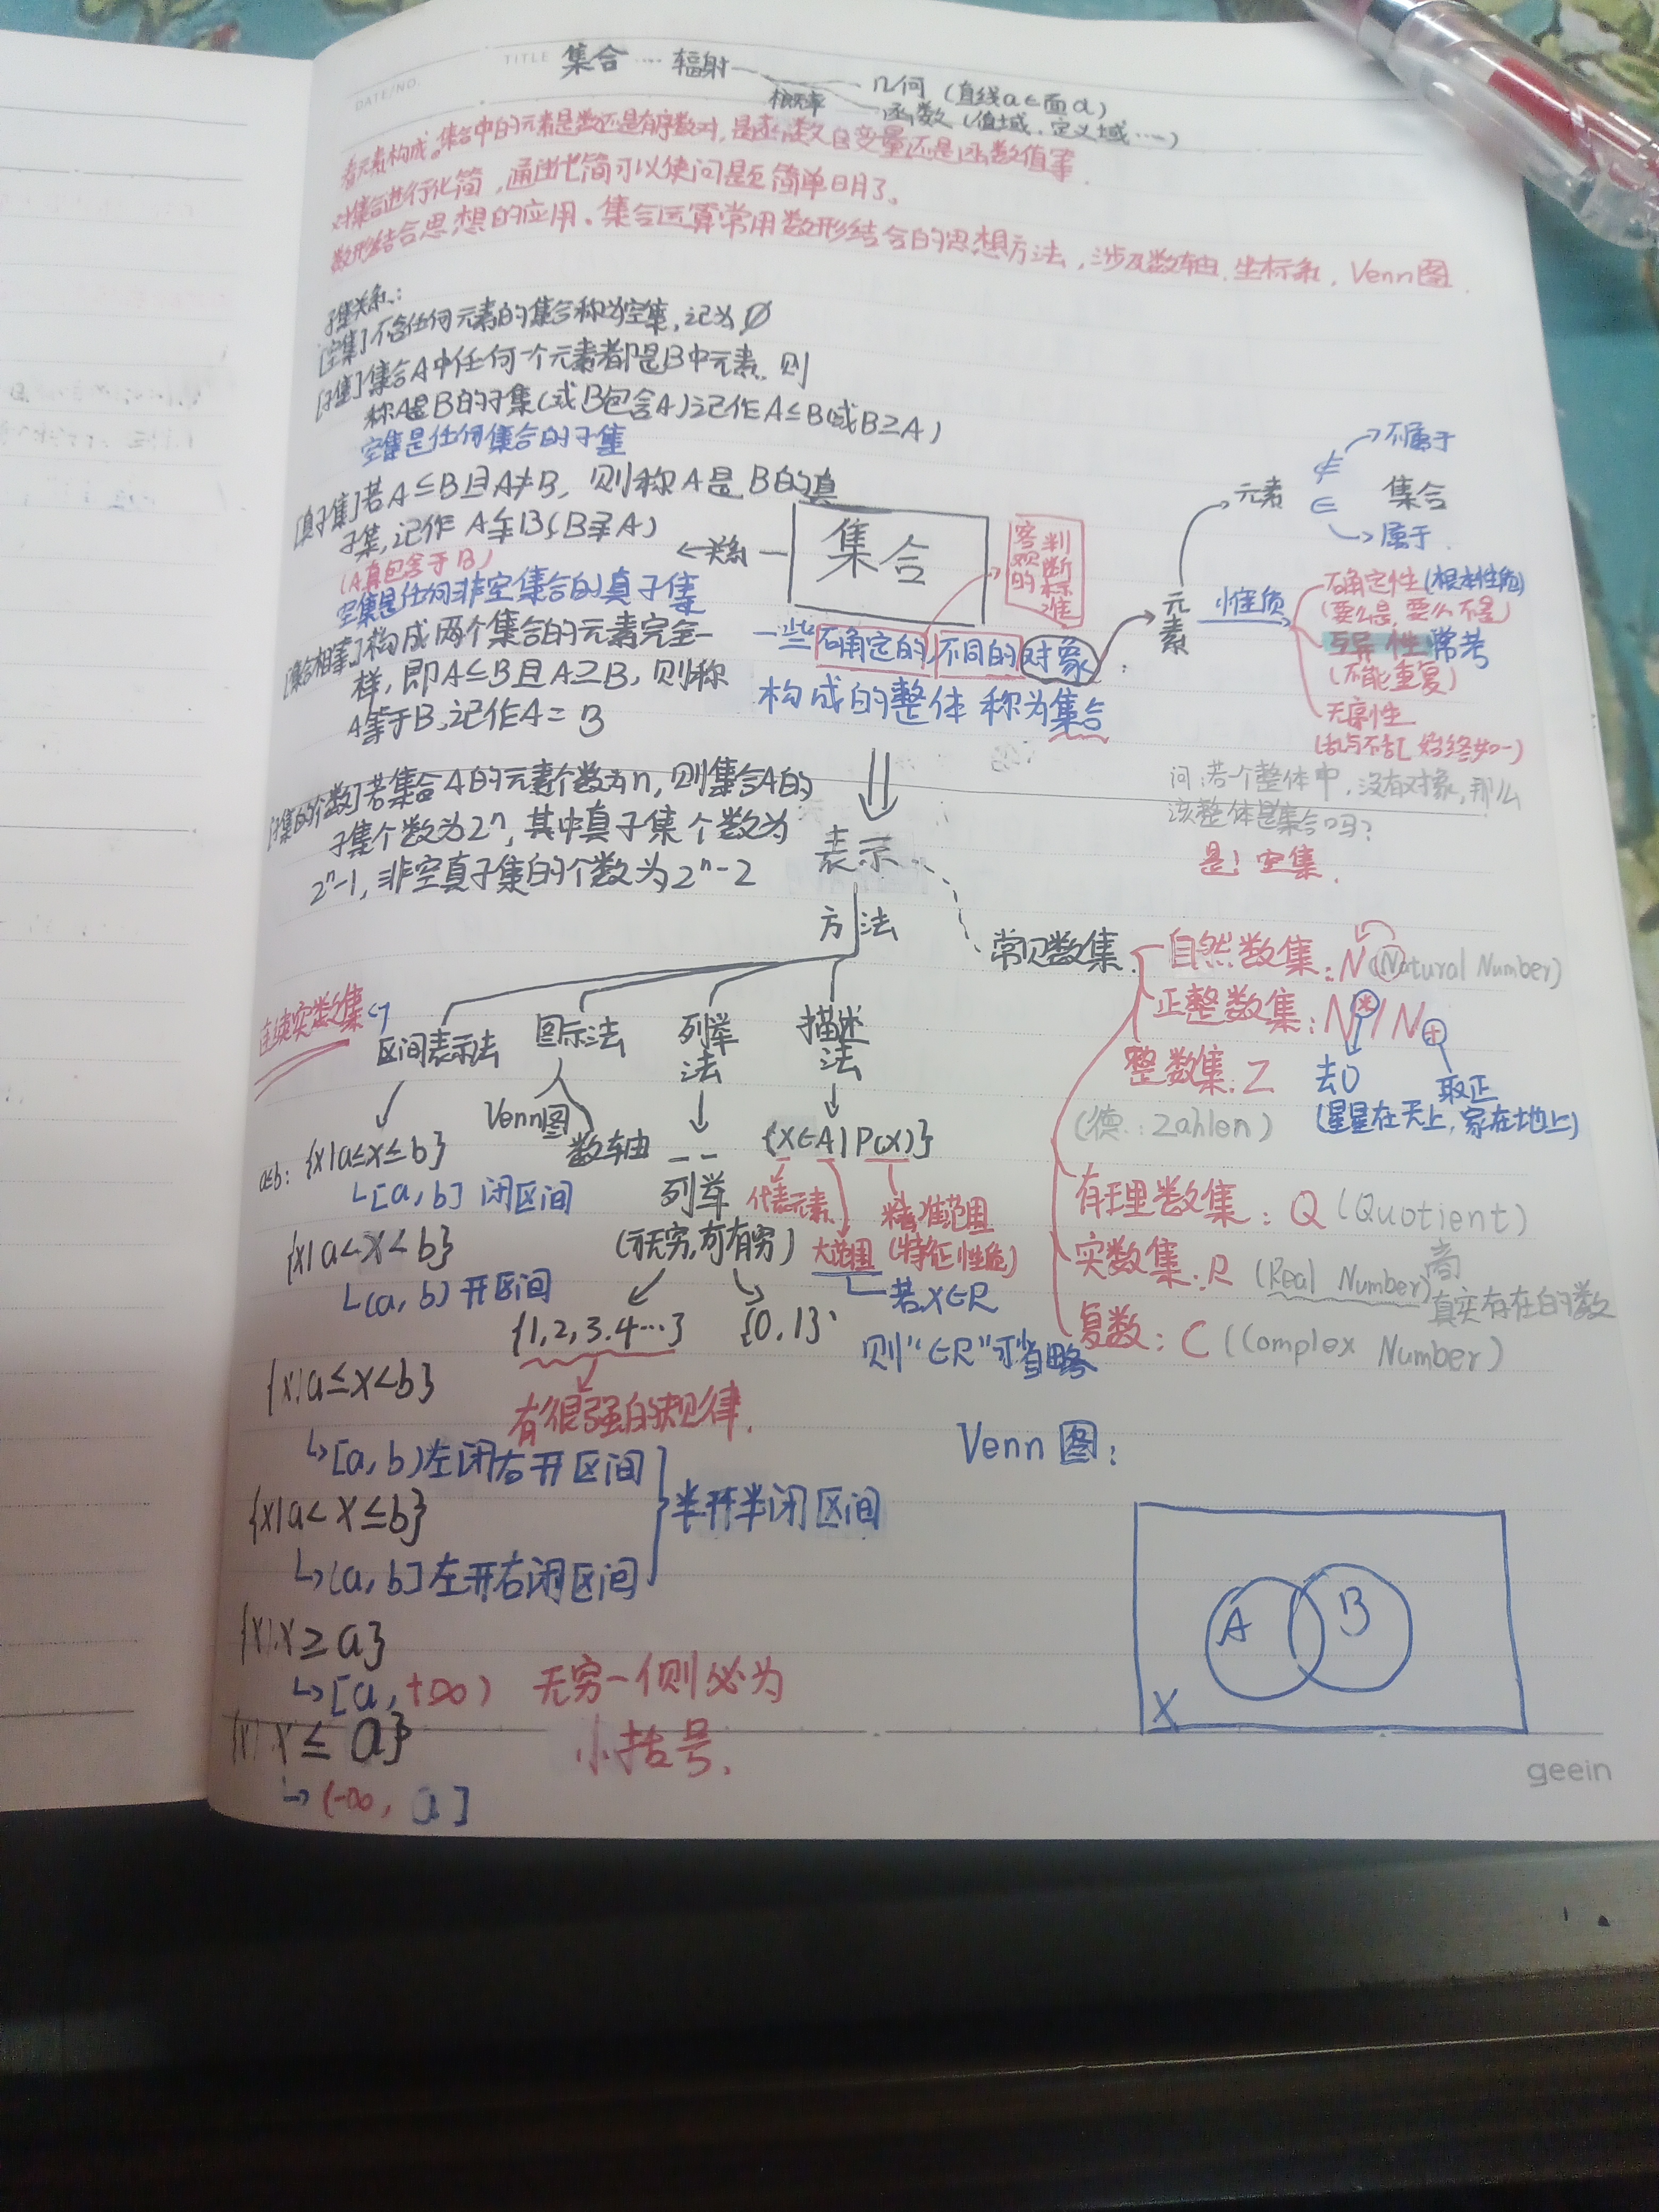 DATE/NO.
TITLE 集合 … 辐射
几何 (直线a⊂面α)
概率
函数 (值域、定义域……)
看元素构成。集合中的元素是数还是有序数对，是函数自变量还是函数值等.
对集合进行化简，通过化简可以使问题简单明了。
数形结合思想的应用。集合运算常用数形结合的思想方法，涉及数轴、坐标系，Venn图.
子集关系:
[空集]不含任何元素的集合称为空集，记为∅
[子集]集合A中任何一个元素都是B中元素，则
称A是B的子集(或B包含A)记作A⊆B(或B⊇A)
空集是任何集合的子集
[真子集]若A⊆B且A≠B，则称A是B的真
子集，记作A⫋B(B⫌A)
(A真包含于B)
空集是任何非空集合的真子集
[集合相等]构成两个集合的元素完全一
样，即A⊆B且A⊇B，则称
A等于B，记作A=B
[子集的个数]若集合A的元素个数为n，则集合A的
子集个数为2ⁿ，其中真子集个数为
2ⁿ-1，非空真子集的个数为2ⁿ-2
←关系
集合
客观的
判断标准
一些确定的,不同的对象
构成的整体 称为集合
元素
元素
∉ 不属于
集合
∈ 属于
性质
确定性(根本性质)
(要么是，要么不是)
互异性 常考
(不能重复)
无序性
(乱与不乱，始终如一)
问:若一个整体中，没有对象，那么
该整体是集合吗?
是! 空集.
表示
方法
常见数集
自然数集:N (Natural Number)
正整数集:N*/N₊
去0
取正
(星星在天上，家在地上)
整数集:Z
(德:Zahlen)
有理数集:Q (Quotient)
商
实数集:R (Real Number)
真实存在的数
复数:C (Complex Number)
连续实数集
区间表示法
图示法
Venn图
数轴
列举法
描述法
列举
(可无穷,可有穷)
{1,2,3,4…}
{0,1}
有很强的规律.
{x∈A|P(x)}
代表元素
大范围
精准范围
(特征性质)
若x∈R
则“∈R”可省略
a≤b: {x|a≤x≤b}
[a,b] 闭区间
{x|a<x<b}
(a,b) 开区间
{x|a≤x<b}
[a,b)左闭右开区间
{x|a<x≤b}
(a,b]左开右闭区间
半开半闭区间
{x|x≥a}
[a,+∞)
{x|x≤a}
(-∞,a]
无穷一侧必为
小括号.
Venn图:
A
B
X
geein